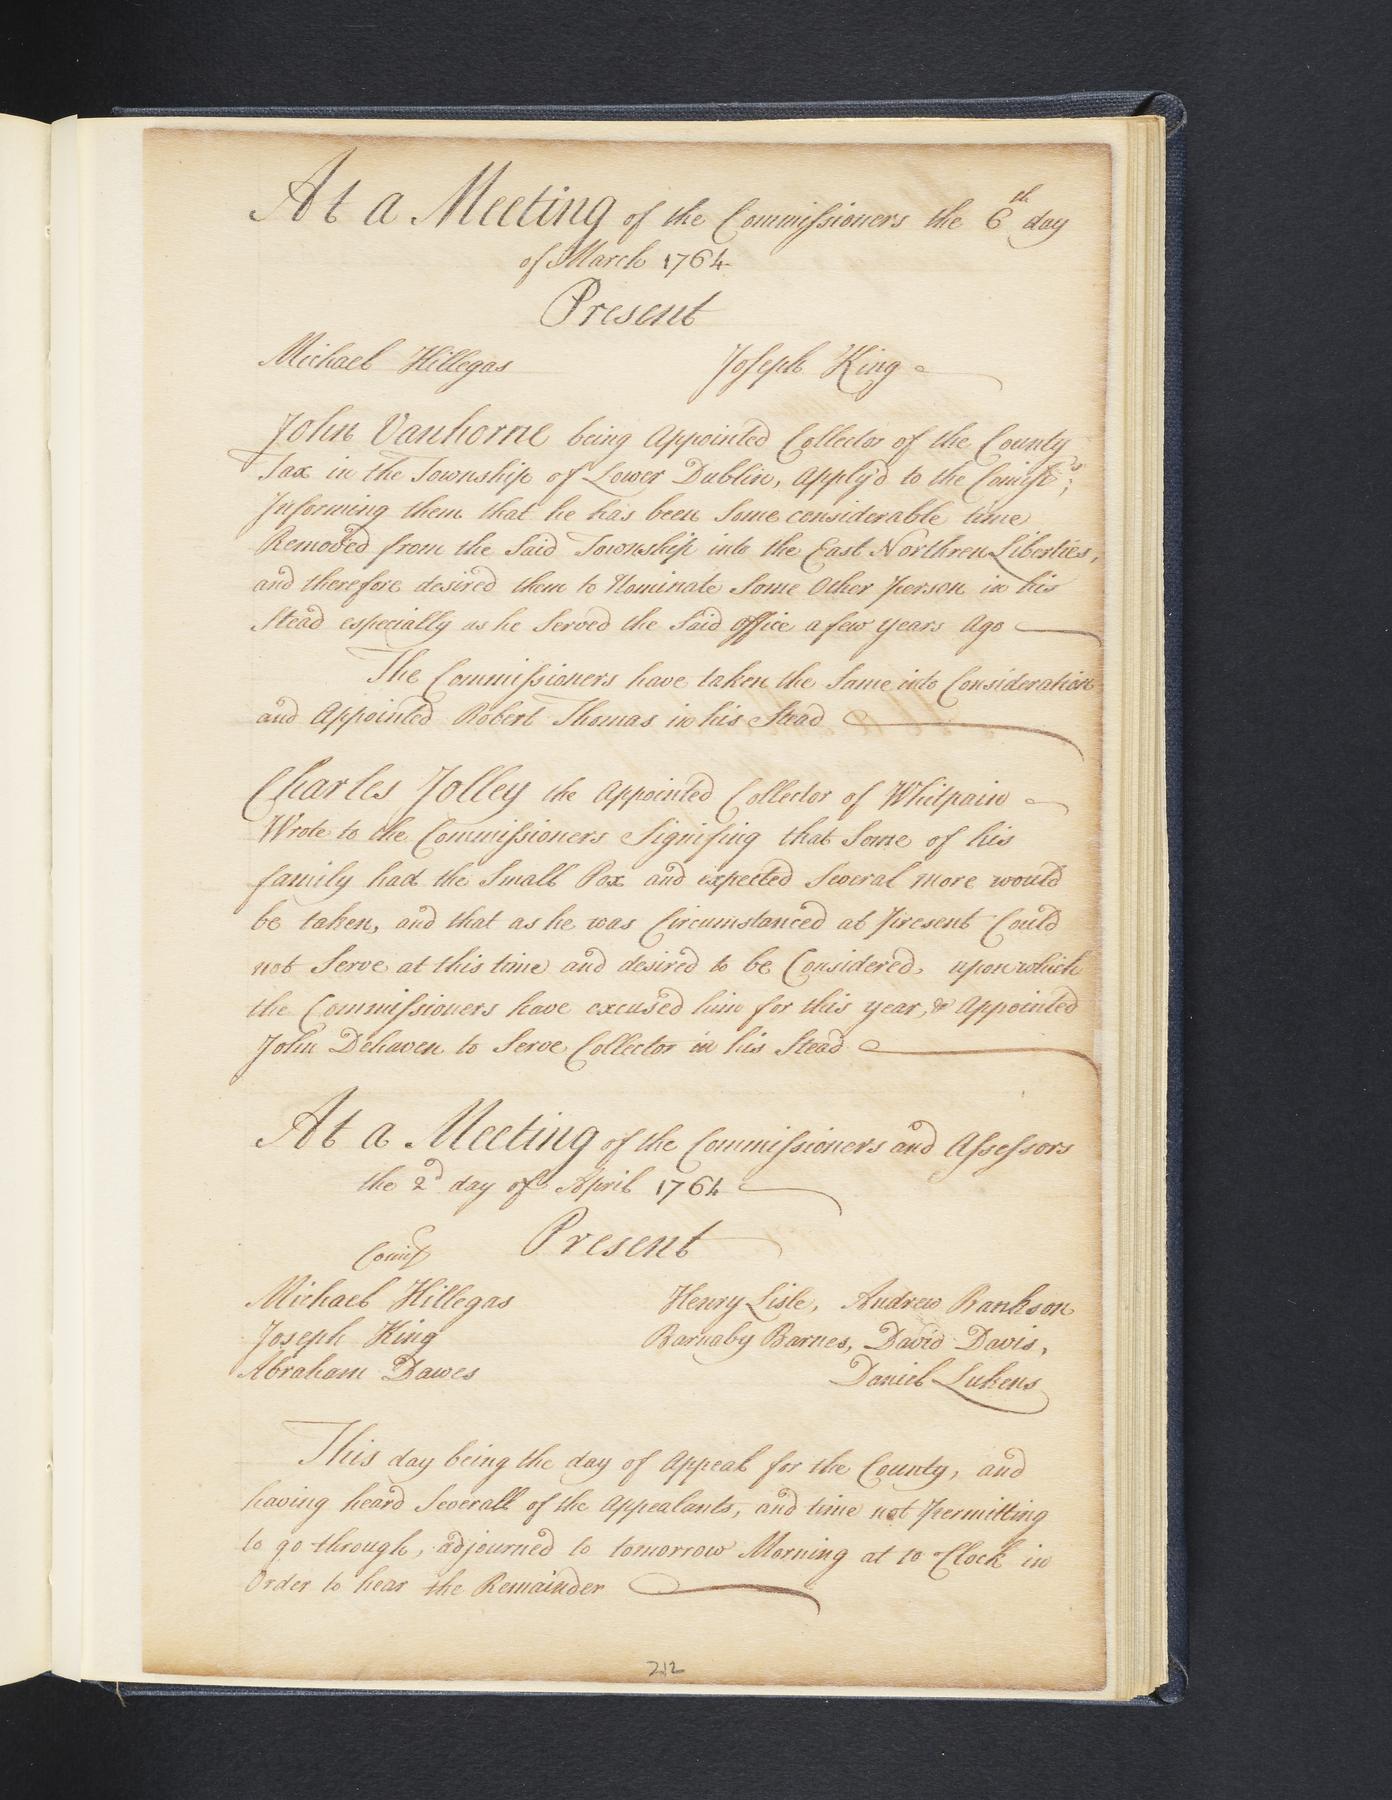 At a Meeting of the Commissioners the 6th day
of March 1764
Present
Michael Hillegas Joseph King
John Vanhorne being Appointed Collector of the County
Tax in the Township of Lower Dublin, Apply'd to the Comiss.rs;
Informing them that he has been Some considerable time
Removed from the Said Township into the East Northren Liberties,
and therefore desired them to Nominate Some Other Person in his
Stead especially as he Served the Said Office a few years Ago
The Commissioners have taken the Same into Consideration
and Appointed Robert Thomas in his Stead
Charles Jolley the Appointed Collector of Whitpain
Wrote to the Commissioners Signifing that Some of his
family had the Small Pox and expected Several more would
be taken, and that as he was Circumstanced at Present Could
not Serve at this time and desired to be Considered, upon which
the Commissioners have excused him for this year, & Appointed
John Dehaven to Serve Collector in his Stead
At a Meeting of the Commissioners and Assessors
the 2d day of April 1764
Present
Michael Hillegas Henry Lisle, Andrew Bankson
Joseph King Barnaby Barnes, David Davis,
Abraham Dawes Daniel Lukens
This day being the day of Appeal for the County, and
having heard Severall of the Appealants, and time not Permitting
to go through, adjourned to tomorrow Morning at 10 Clock in
Order to hear the Remainder
212